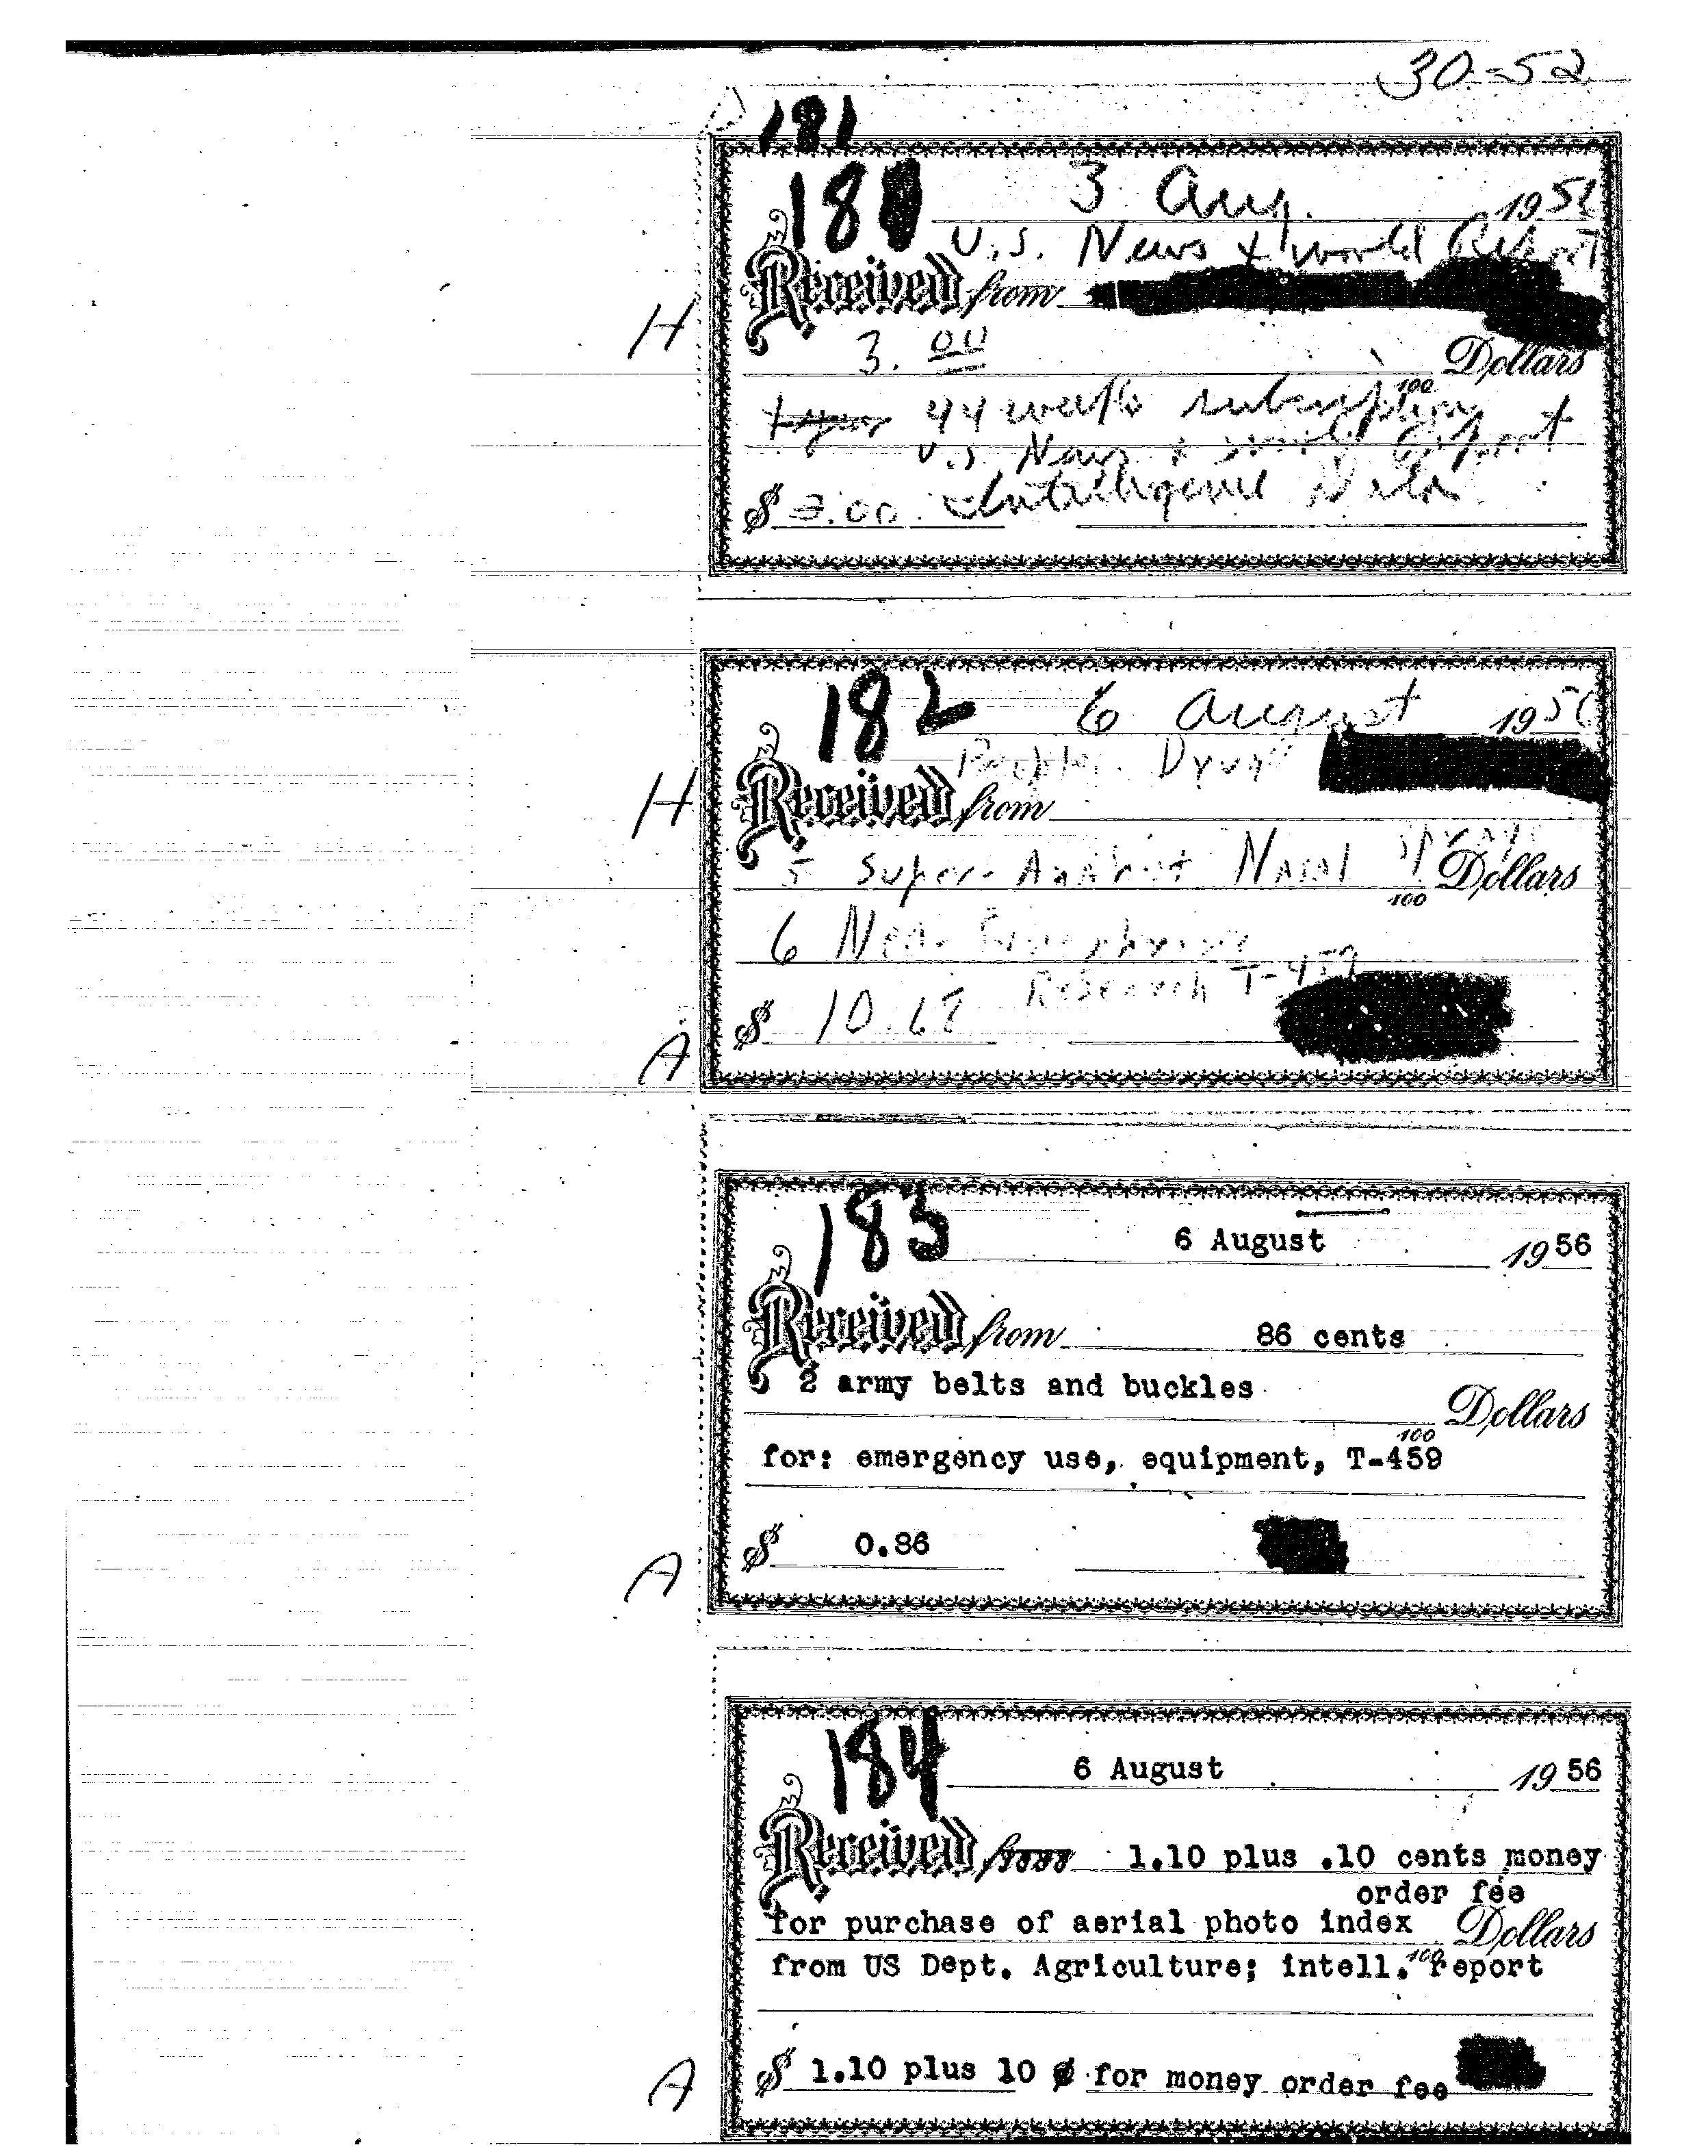 30-52
181
180
3 Aug. 1956
U.S. News & World Report
Received from
H
3.00
Dollars
100
1 year 44 weeks subscription +
U.S. News & World Report
$ 3.00
182
6 August 1956
Drug
Received from
H
5 Super-Anahist Nasal Sprays
Dollars
100
6 Neo-
Research T-459
$ 10.
A
183
6 August 1956
Received from 86 cents
2 army belts and buckles
Dollars
100
for: emergency use, equipment, T-459
$ 0.86
A
184
6 August 1956
Received from 1.10 plus .10 cents money
order fee
for purchase of aerial photo index Dollars
100
from US Dept. Agriculture; intell. report
$ 1.10 plus 10 ¢ for money order fee
A